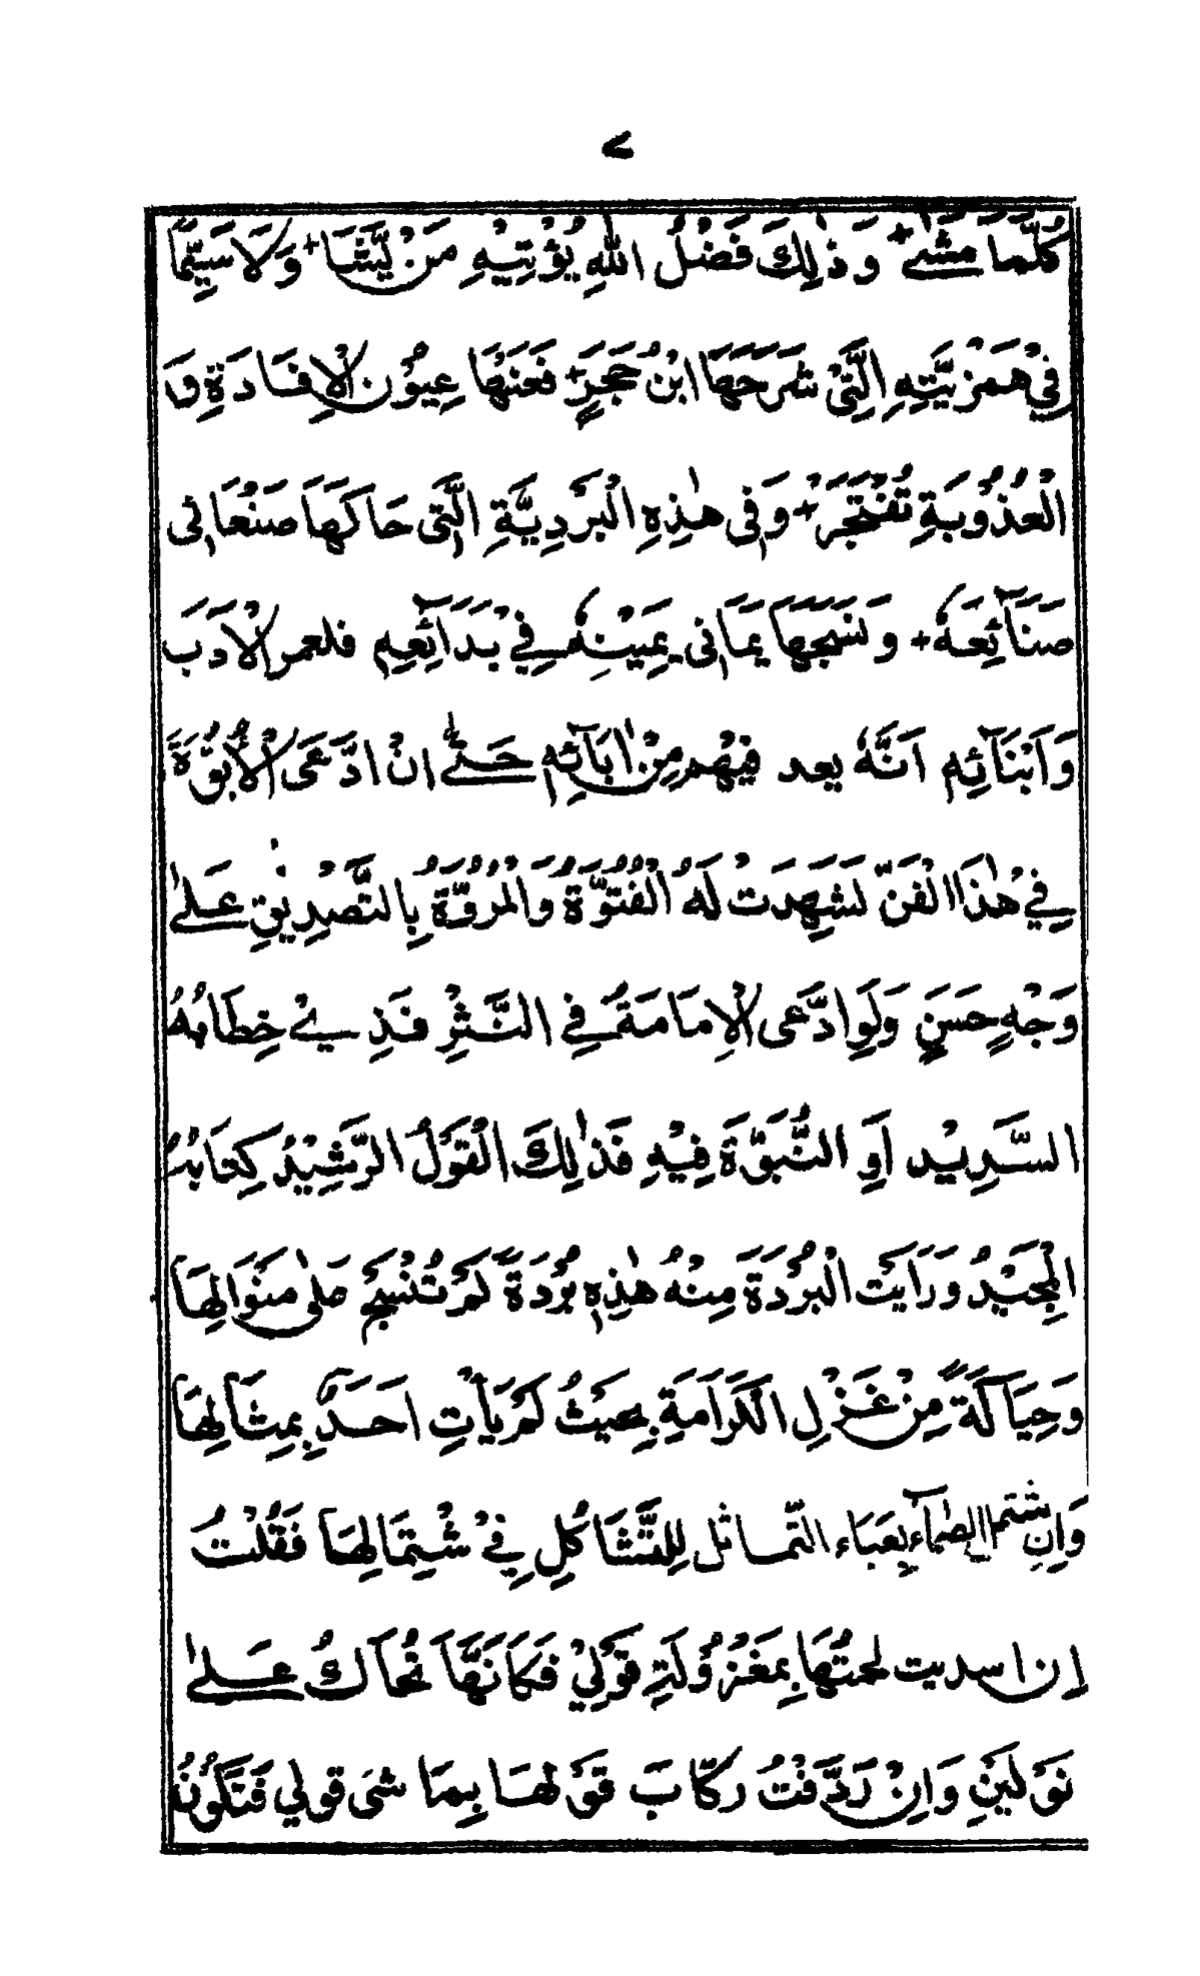 ے
كُلَّمَا مَشٰى + وَ ذٰلِكَ فَضْلُ اللهِ يُؤْتِيْهِ مَنْ يَّشَا + وَلَا سَيِّمَا
فِيْ هَمْزِيَّتِهِ الَّتِيْ شَرَحَهَا ابْنُ حَجَرٍ + فَعَنْهَا عِيُوْنُ الْاِفَادَةِ وَ
الْعُذُوْبَةِ تُفْتَجَرْ + وَفِى هٰذِهِ الْبَرْدِيَّةِ الَّتِى حَاكَهَا صَنْعَانِى
صَنَآئِعَهٗ + وَنَسَجَهَا يَمَانِى يَمِيْنِهٖ فِيْ بَدَآئِعِهٖ فلعمر الْاَدَبَ
وَاَبْنَآئِهٖ اَنَّهٗ يعد فِيْهِمْ مِنْ اٰبَآئِهٖ حَتّٰى اِنْ ادَّعَى الْاُبُوَّةَ
فِيْ هٰذَا الْفَنِّ لَشَهِدَتْ لَهُ الْفُتُوَّةُ وَالْمُرُوَّةُ بِالتَّصْدِيْقِ عَلٰى
وَجْهٍ حَسَنٍ وَلَوِ ادَّعَى الْاِمَامَةَ فِي النَّثْرِ فَذِيْ خِطَابُهُ
السَّدِيْد اَوِ النُّبُوَّةَ فِيْهِ فَذٰلِكَ الْقَوْلُ الرَّشِيْدُ كِتَابُهُ
الْمَجِيْدُ وَرَاَيْتُ الْبُرْدَةَ مِنْهُ هٰذِهٖ بُرْدَةً لَمْ تُنْسَجْ عَلٰى مِنْوَالِهَا
وَحِيَاكَةً مِنْ غَزْلِ الْكَرَامَةِ بِحَيْثُ لَمْ يَأْتِ اَحَدٌ بِمِثَالِهَا
وَاِنِ شتمل الصَّمَّآء بِعَبَاء التَّمَاثل لِلتَّشَاكُلِ فِيْ شْتِمَالِهَا فَقُلْتُ
اِنْ اسديت لحمتُهَا بِمَغْزُوْلَةِ قَوْلِيْ فَكَاَنَّهَا تُحَاكُ عَلٰى
نَوْلَيْنِ وَاِنْ رَدَّفْتُ ركَّابَ قَوْلهَا بِمَا شىَ قولي فَتَكُوْنُ